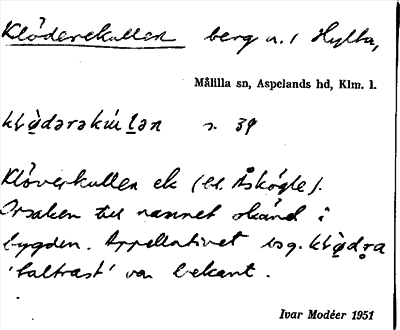 Klöderekullen berg n. i Hylta,
Målilla sn, Aspelands hd, Klm. l.
s. 39
Klöverkullen ek (el. Åskögle).
Orsaken till namnet okänd i
bygden. Appellativet sg.
'baltrast' var bekant.
Ivar Modéer 1951